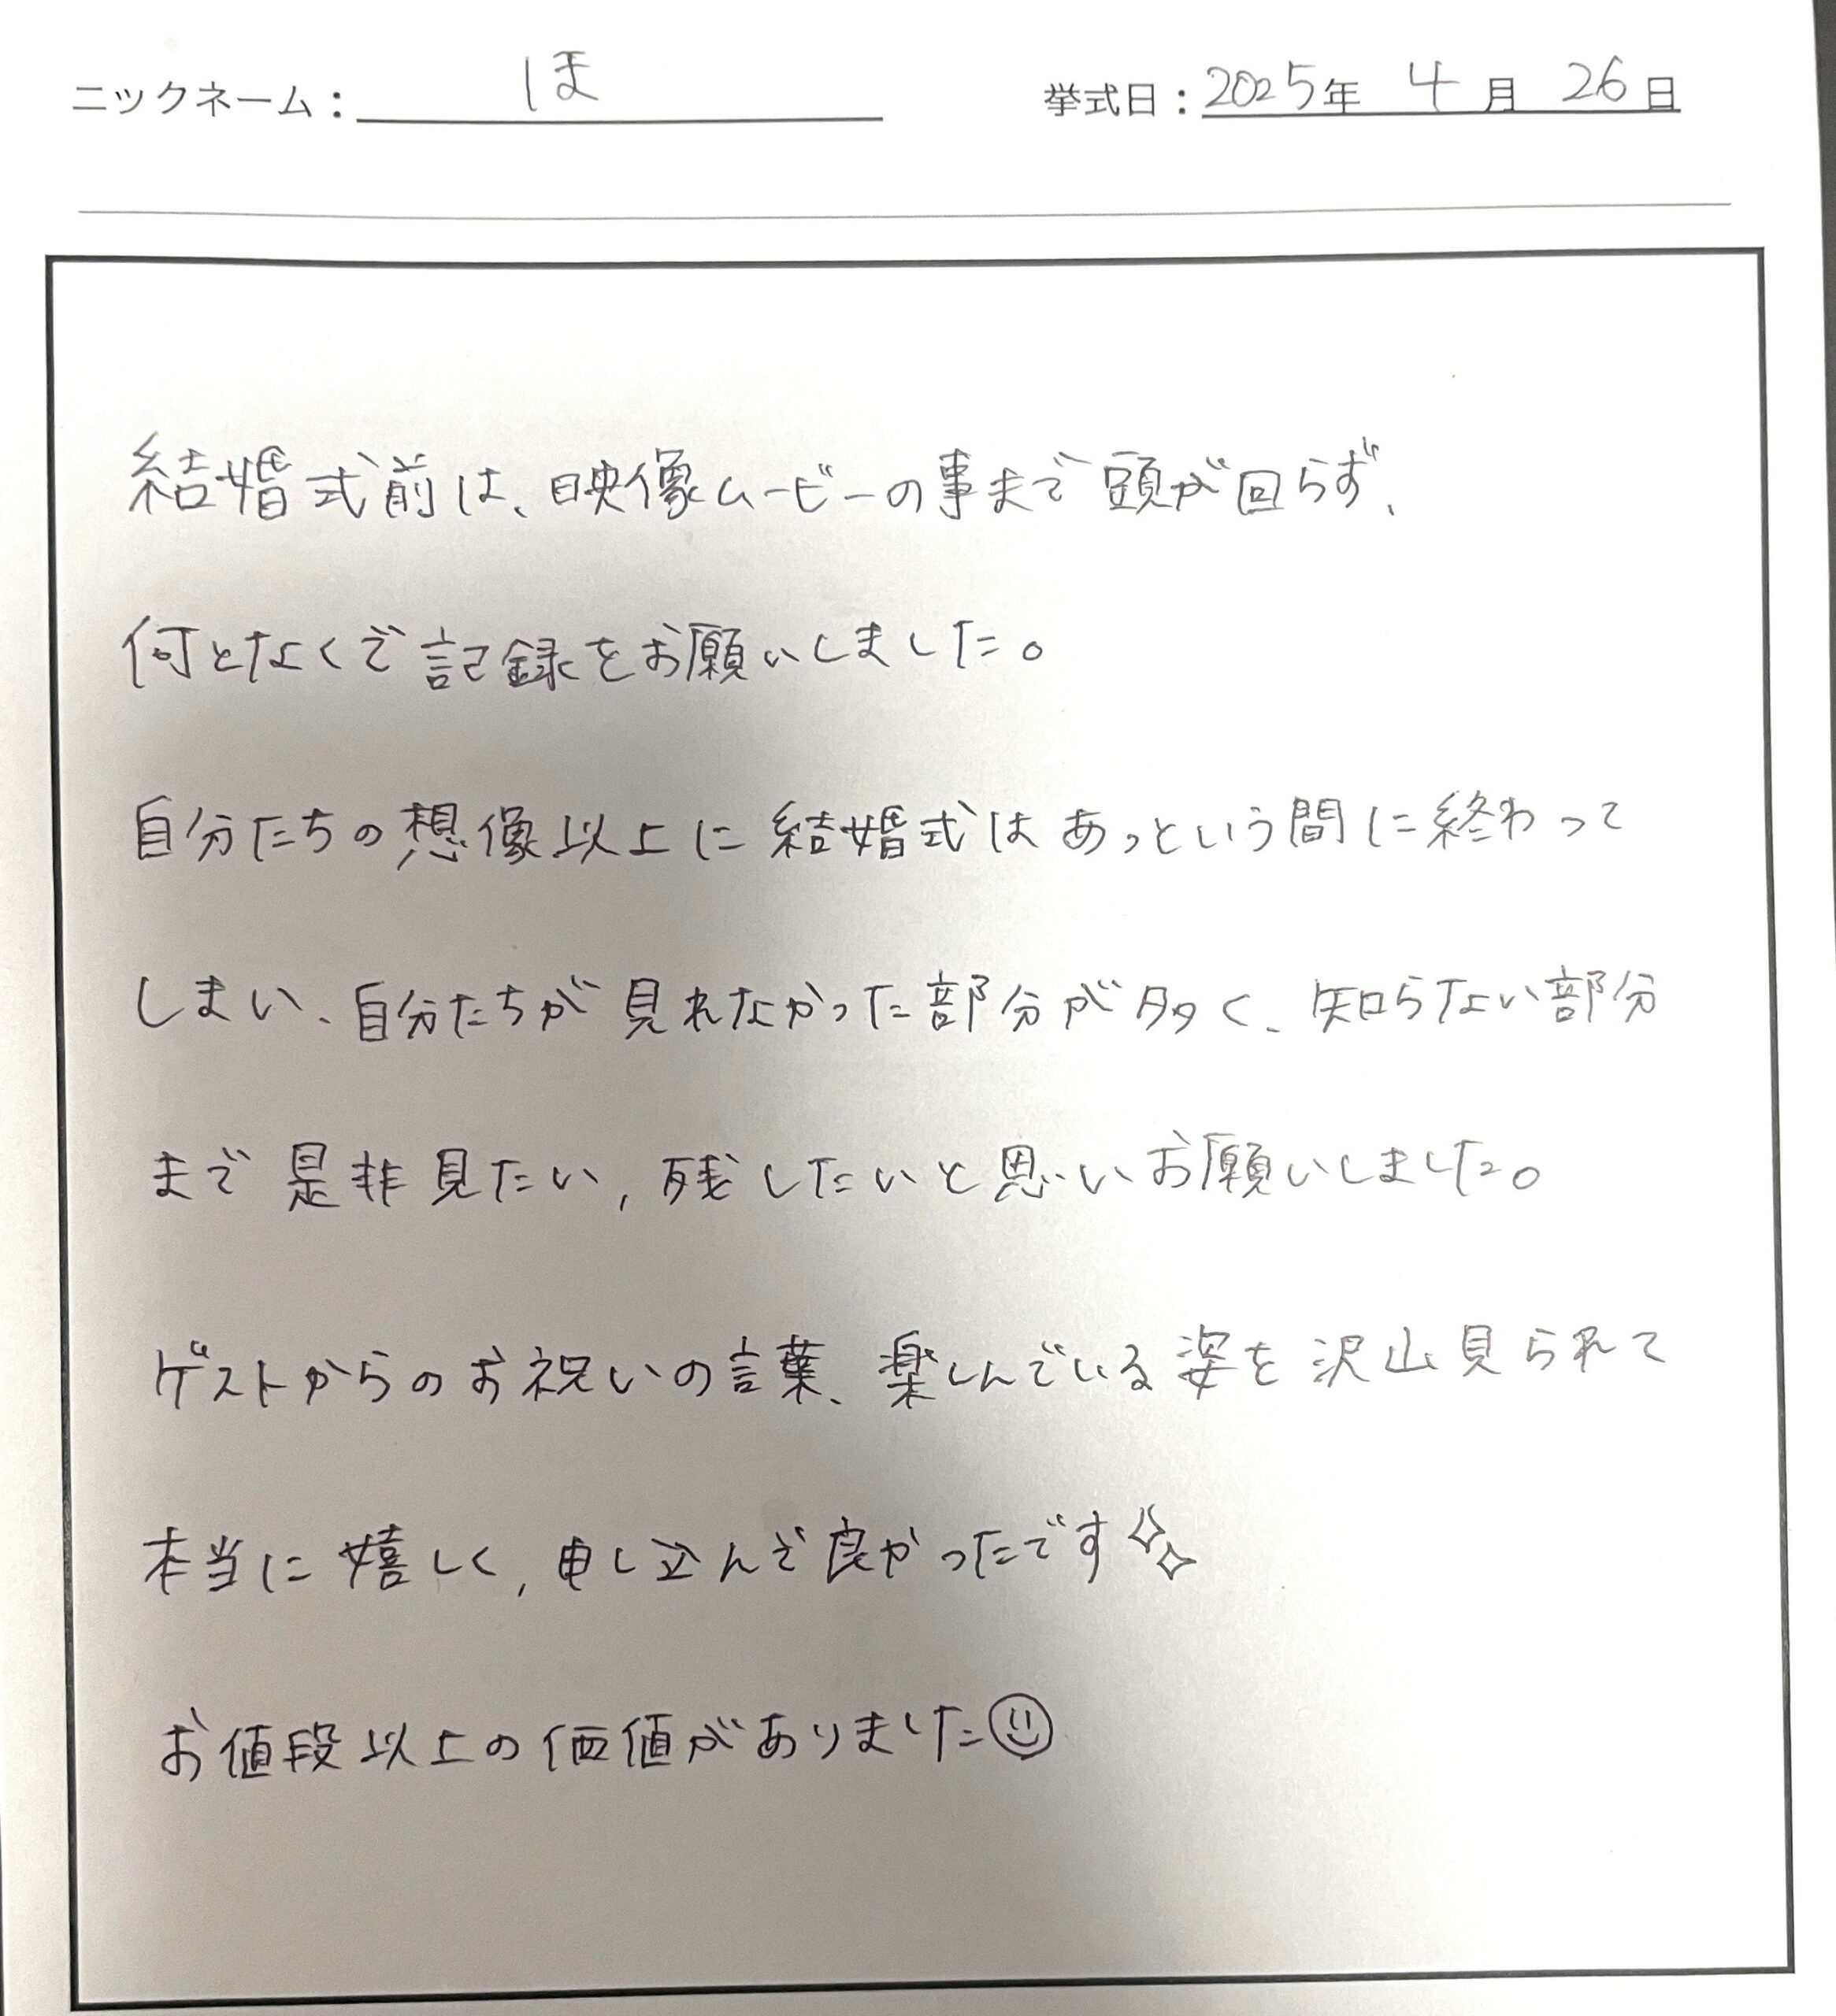 ニックネーム： ほ
挙式日：2025年 4月 26日
結婚式前は、映像ムービーの事まで頭が回らず、
何となくで記録をお願いしました。
自分たちの想像以上に結婚式はあっという間に終わって
しまい、自分たちが見れなかった部分が多く、知らない部分
まで是非見たい、残したいと思いお願いしました。
ゲストからのお祝いの言葉、楽しんでいる姿を沢山見られて
本当に嬉しく、申し込んで良かったです✨
お値段以上の価値がありました☺